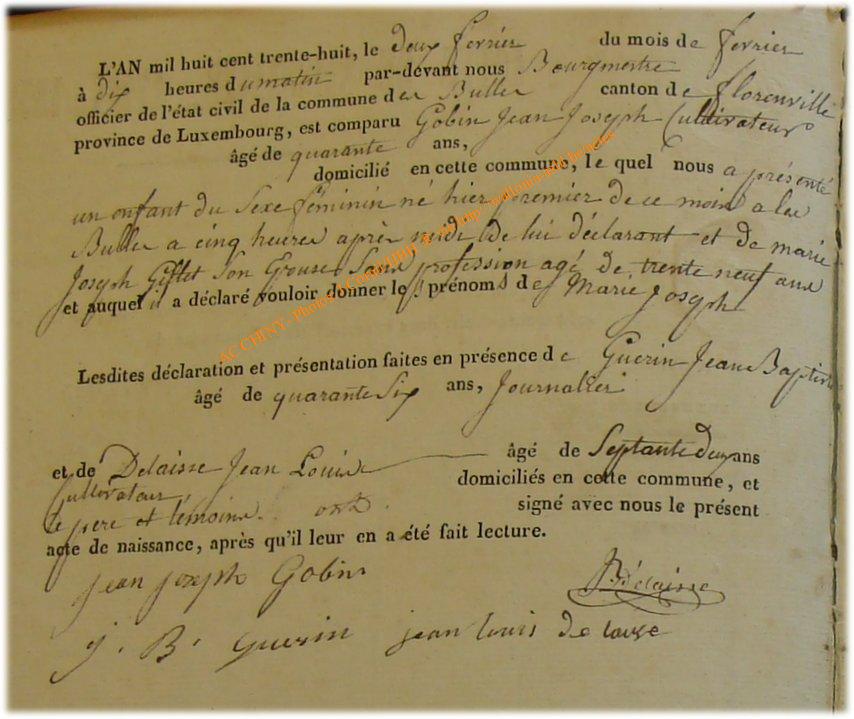 L'AN mil huit cent trente-huit, le deux fevrier du mois de fevrier
à dix heures du matin par-devant nous Bourgmestre
officier de l'état civil de la commune de la Bulle canton de florenville
province de Luxembourg, est comparu Gobin Jean Joseph Cultivateur
âgé de quarante ans,
domicilié en cette commune, le quel nous a présenté
un enfant du Sexe féminin né hier premier de ce mois a la
Bulle a cinq heures après midi de lui déclarant et de marie
Joseph Gillet Son Epouse Sans profession agé de trente neuf ans
et auquel il a déclaré vouloir donner les prénoms de Marie Joseph
Lesdites déclaration et présentation faites en présence de Guerin Jean Baptiste
âgé de quarante Six ans, Journalier
et de Delaisse Jean Louis âgé de Septante deux ans
Cultivateur domiciliés en cette commune, et
le père et témoins ont signé avec nous le présent
acte de naissance, après qu'il leur en a été fait lecture.
jean joseph Gobin
Bdelaisse
j. B. guerin jean louis de
ACCHINY - Photos